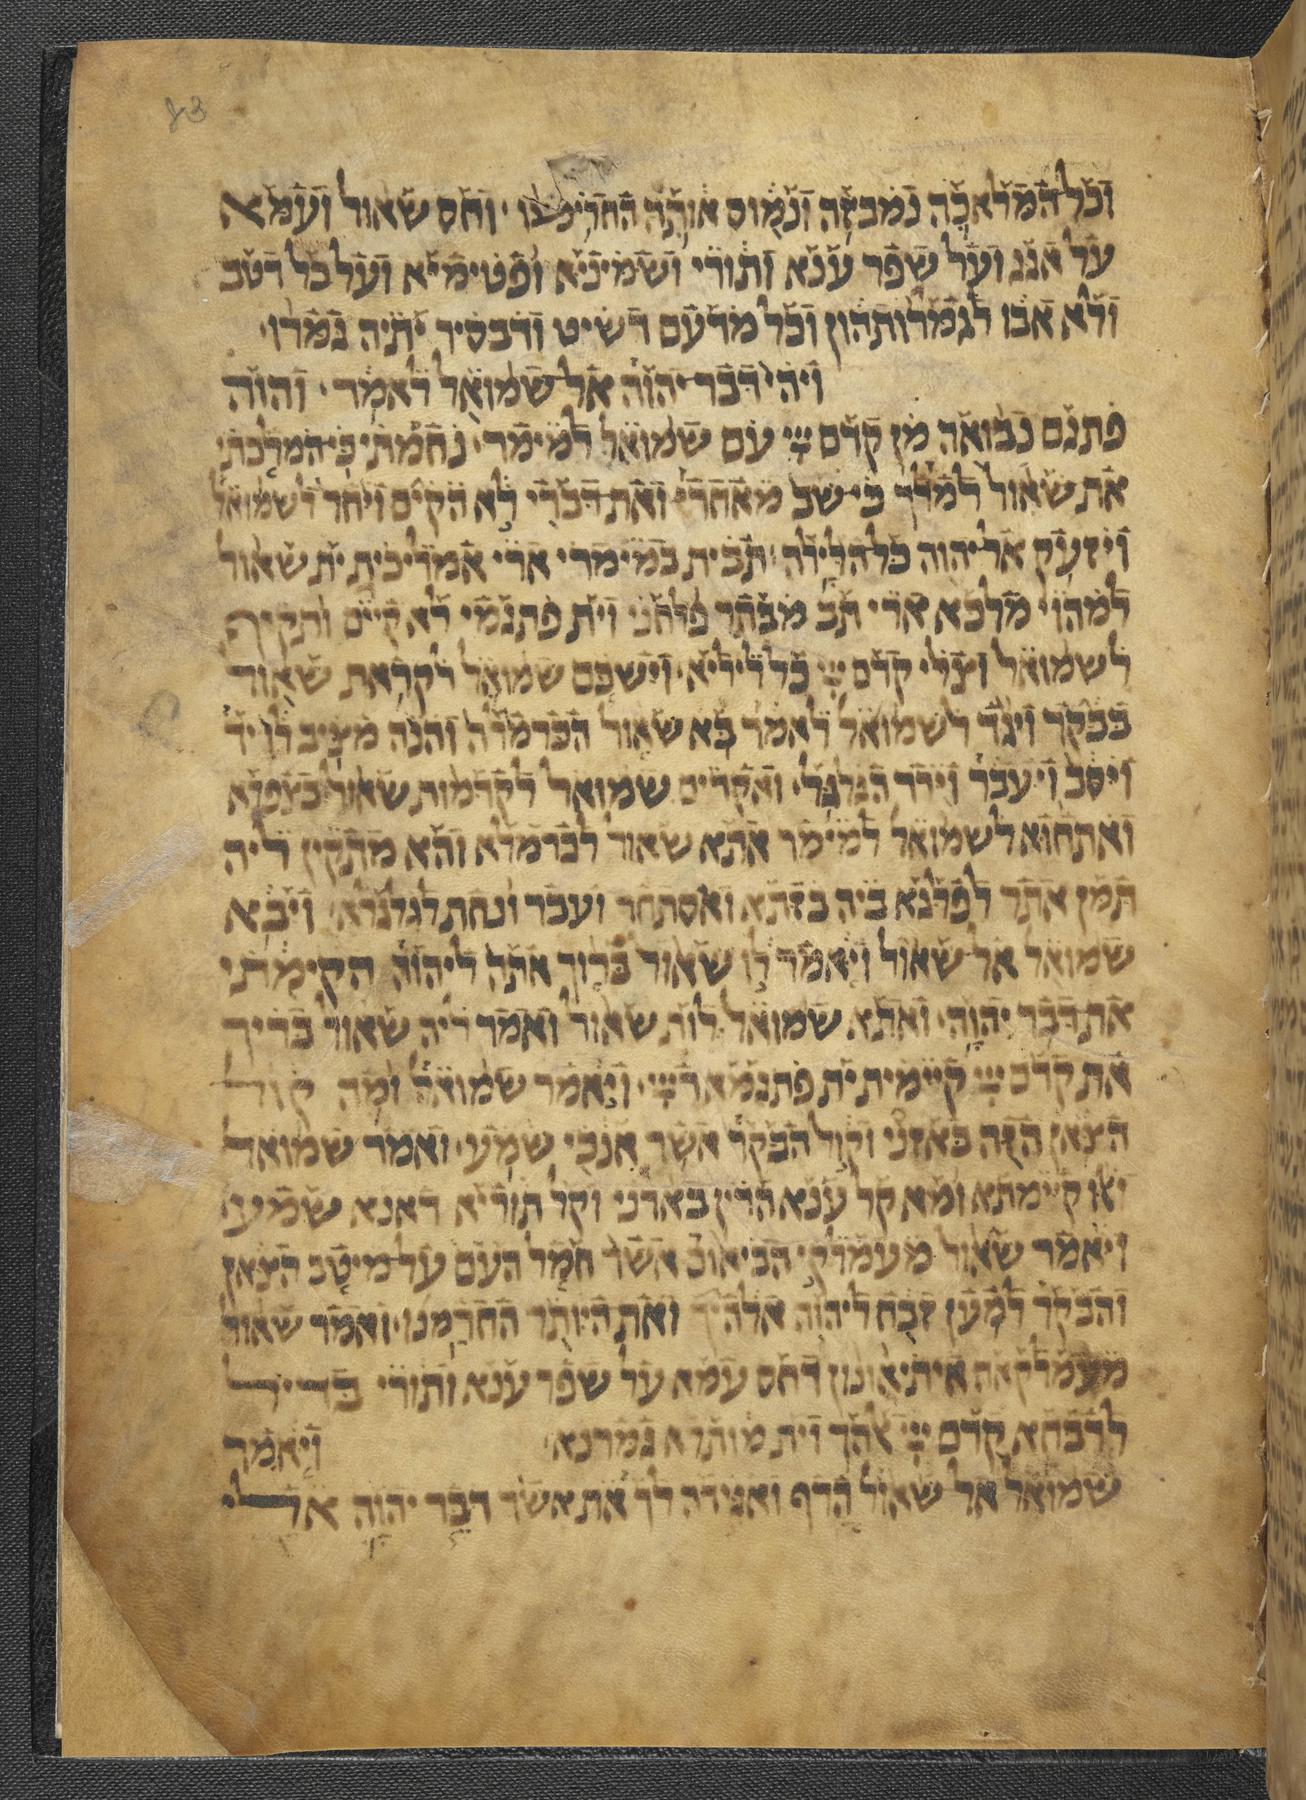 83
וכל המלאכה נמבזה ונמוס אותה החרימו · וחס שאול ועמא
על אגג ועל שפר ענא ותורי ושמיניא ופטימיא ועל כל דטב
ולא אבו לגמלותהון וכל מדעם דשיט ודבסיר יתיה גמרו ·
ויהי דבר יהוה אל שמואל לאמר · והוה
פתגם נבואה מן קדם עם שמואל למימר · נחמתי כי המלכתי
את שאול למלך כי שב מאחרי ואת דברי לא הקים ויחר לשמואל
ויזעק אל יהוה כל הלילה · תבית במימרי ארי אמליכית ית שאול
למהוי מלכא ארי תב מבתר פלחני וית פתגמי לא קיים ותקיף
לשמואל וצלי קדם כל ליליא · וישכם שמואל לקראת שאול
בבקר ויגד לשמואל לאמר בא שאול הכרמלה והנה מציב לו יד
ויסב ויעבר וירד הגלגל · ואקדים שמואל לקדמות שאול בצפרא
ואתחוא לשמואל למימר אתא שאול לכרמלא והא מתקין ליה
תמן אתר לפלגא ביה בזתא ואסתחר ועבר ונחת לגלגלא · ויבא
שמואל אל שאול ויאמר לו שאול ברוך אתה ליהוה הקימתי
את דבר יהוה · ואתא שמואל לות שאול ואמר ליה שאול בריך
את קדם קיימית ית פתגמא · ויאמר שמואל ומה קול
הצאן הזה באזני וקול הבקר אשר אנכי שמע · ואמר שמואל
קיימתא ומא קל ענא הדין באדני וקל תוריא דאנא שמע
ויאמר שאול מעמלקי הביאום אשר חמל העם על מיטב הצאן
והבקר למען זבח ליהוה אלהיך ואת היותר החרמנו · ואמר שאול
מעמלקאה איתיאונון דחס עמא על שפר ענא ותורי בדיל
לדבחא קדם אלהך וית מותרא גמרנא · ויאמר
שמואל אל שאול הרף ואגידה לך את אשר דבר יהוה אלי